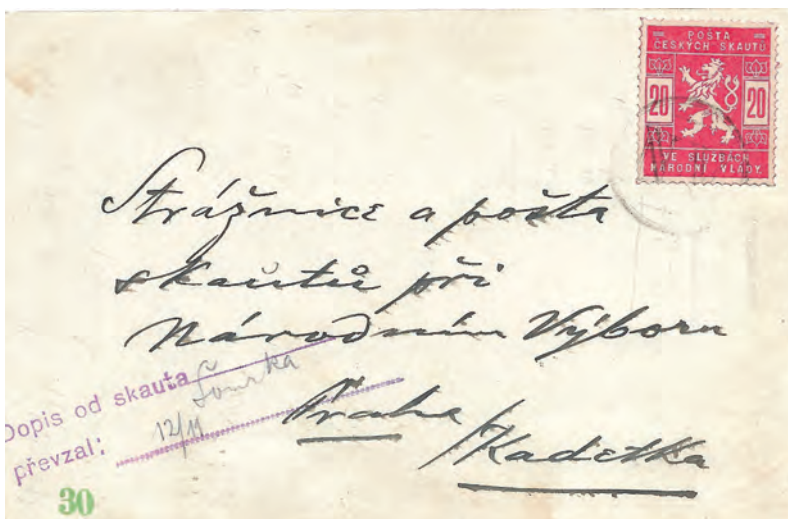 POŠTA
ČESKÝCH SKAUTŮ
20 20
VE SLUŽBÁCH
NÁRODNÍ VLÁDY
Strážnice a pošta
skautů při
Národním Výboru
Praha / Kadetka
Dopis od skauta
převzal: 12/11
30